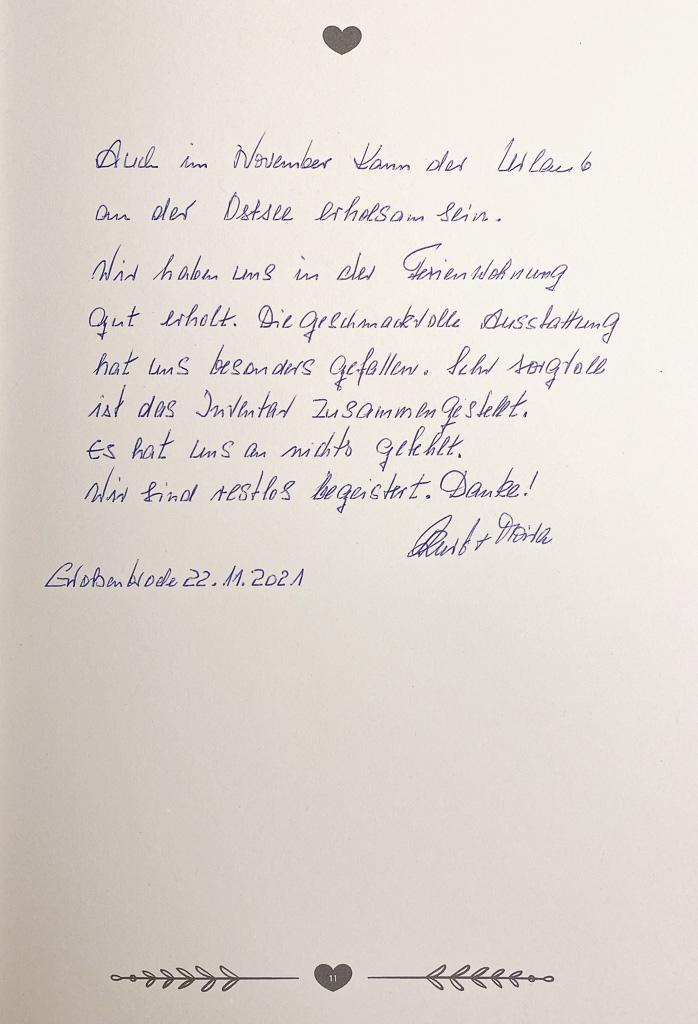 Auch im November kann der Urlaub
an der Ostsee erholsam sein.
Wir haben uns in der Ferienwohnung
gut erholt. Die geschmackvolle Ausstattung
hat uns besonders gefallen. Sehr sorgvoll
ist das Inventar zusammengestellt.
Es hat uns an nichts gefehlt.
Wir sind restlos begeistert. Danke!
Großenbrode 22.11.2021
11